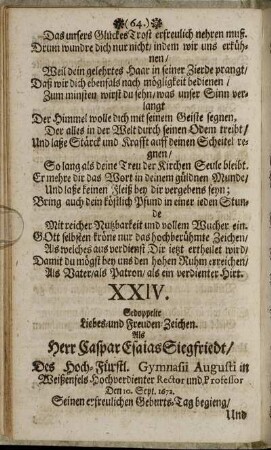 (64.)
Das unsers Glückes Trost erfreulich nehren muß.
Drum wundre dich nur nicht/ indem wir uns erküh-
nen/
Weil dein gelehrtes Haar in seiner Zierde prangt/
Daß wir dich ebenfals nach mögligkeit bedienen/
Zum minsten wirst du sehn/ was unser Sinn ver-
langt
Der Himmel wolle dich mit seinem Geiste segnen,
Der alles in der Welt durch seinen Odem treibt/
Und laße Stärck und Krafft auff deinen Scheitel re-
gnen/
So lang als deine Treu der Kirchen Seule bleibt.
Er mehre dir das Wort in deinem güldnen Munde/
Und laße keinen Fleiß bey dir vergebens seyn;
Bring auch dein köstlich Pfund in einer ieden Stun-
de
Mit reicher Nutzbarkeit und vollem Wucher ein.
GOtt selbsten kröne nur das hochberühmte Zeichen/
Als welches aus verdienst Dir ietzt ertheilet wird/
Damit du mögst bey uns den hohen Ruhm erreichen/
Als Vater/als Patron/ als ein verdienter Hirt.
XXIV.
Gedoppelte
Liebes-und Freuden Zeichen.
Als
Herr Caspar Esaias Siegfriedt/
Des Hoch-Fürstl. Gymnasii Augusti in
Weißenfels Hochverdienter Rector und Professor
Den 10. Sept. 1672.
Seinen erfreulichen Geburts-Tag begieng/
Und